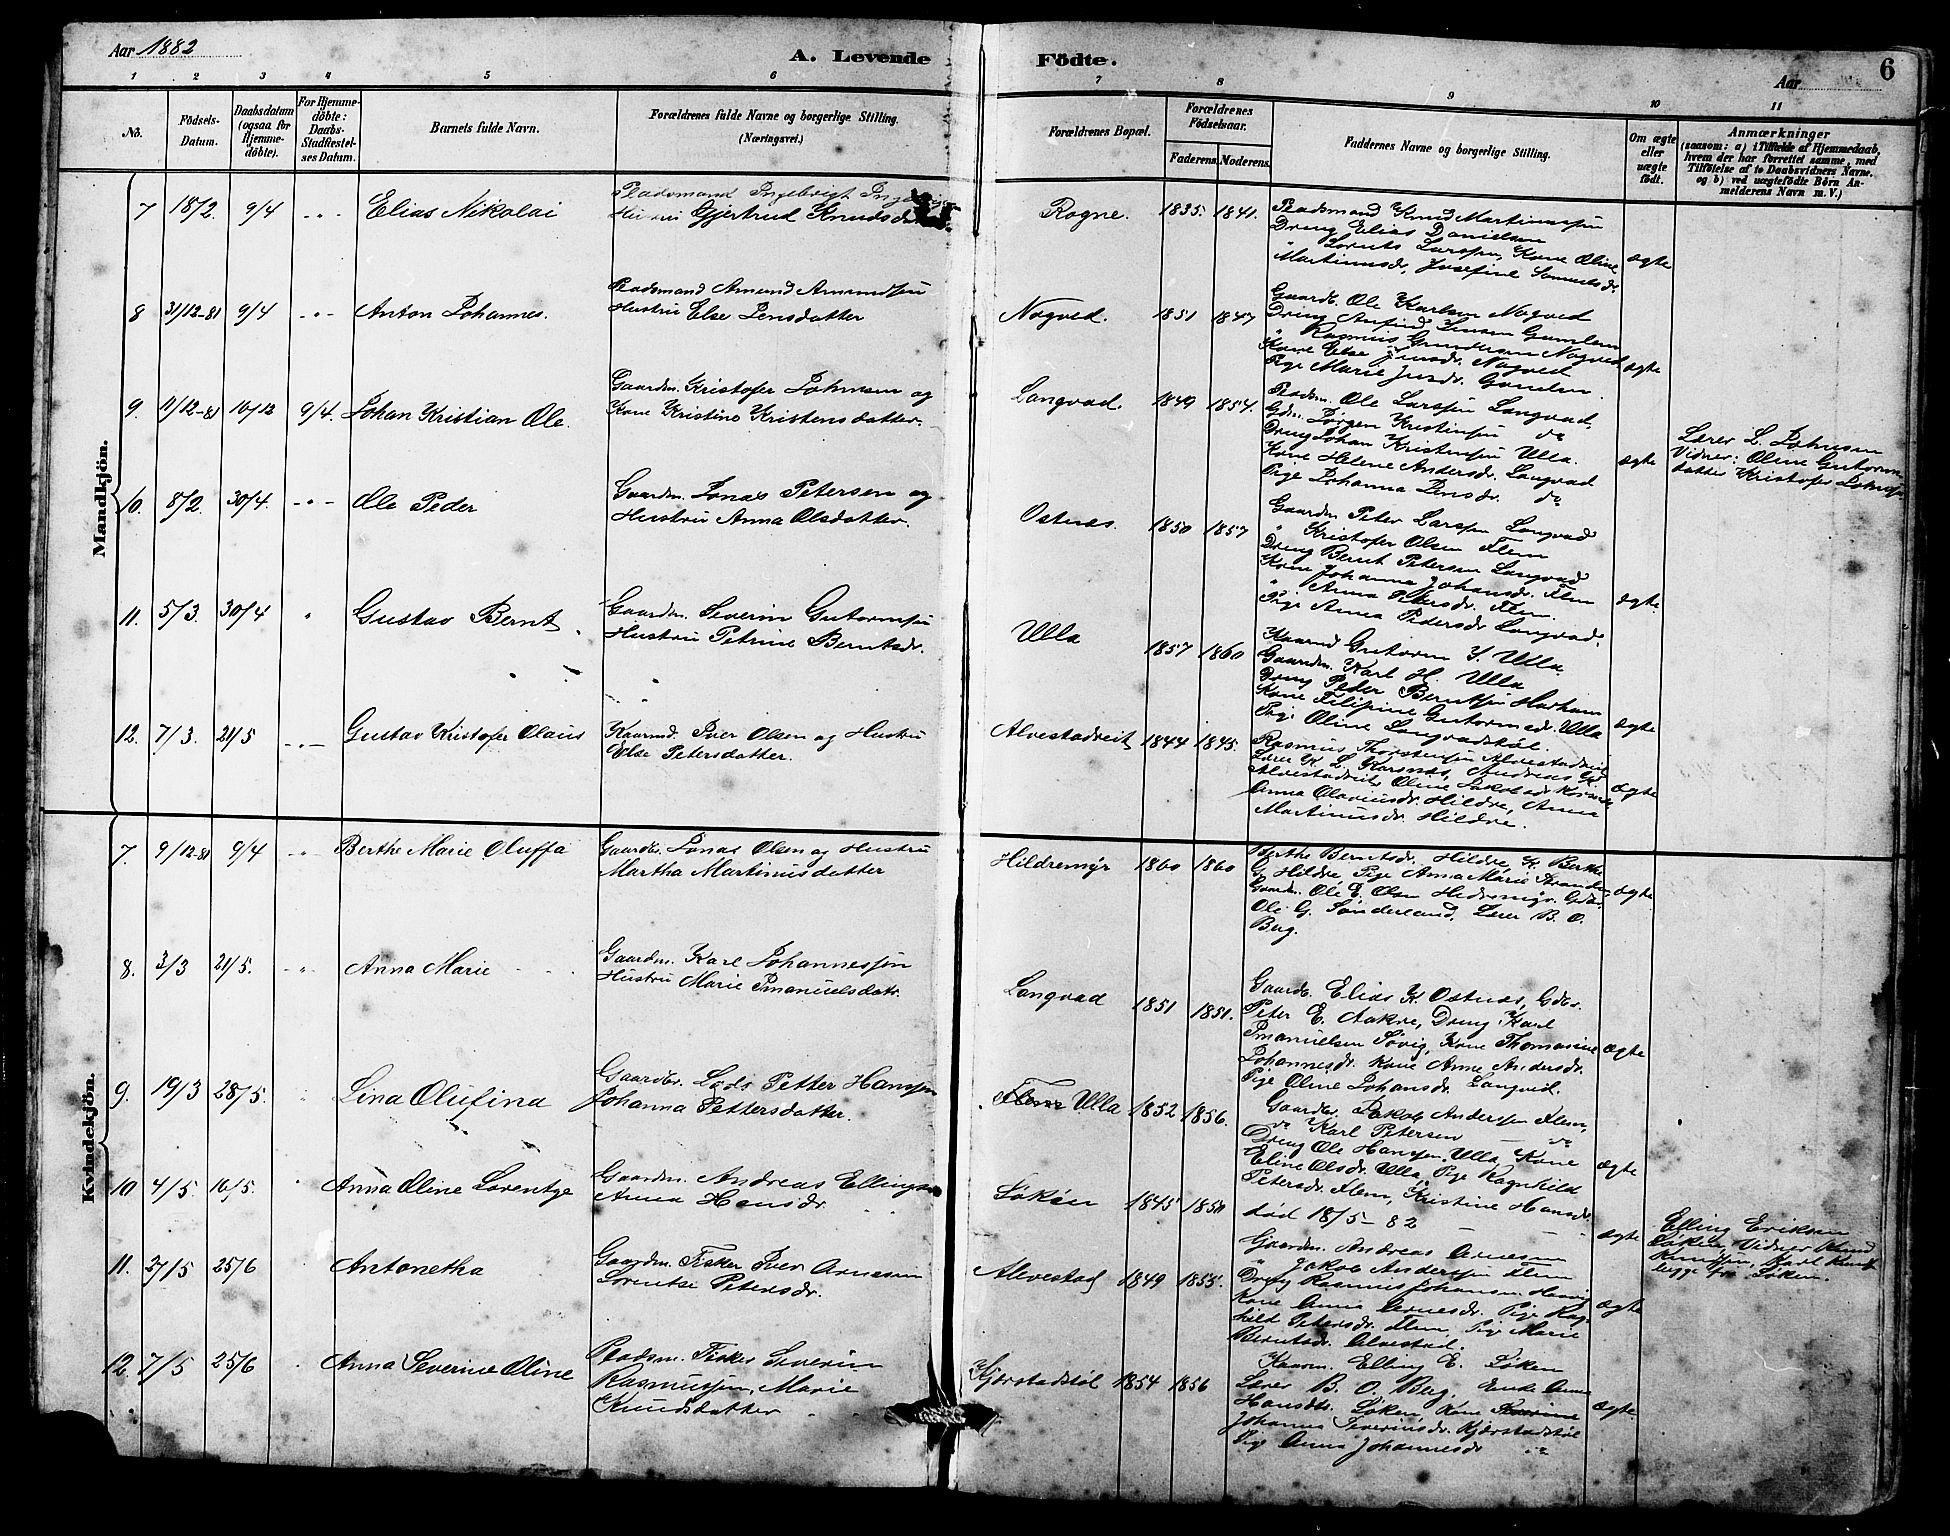 Aar 1882
A. Levende Födte.
Aar
6
1 2 3 4 5 6 7 8 9 10 11
No.
Födsels-Datum.
Daabsdatum (ogsaa for Hjemmedöbte).
For Hjemmedöbte: Daabs-Stadfæstelses Datum.
Barnets fulde Navn.
Forældrenes fulde Navne og borgerlige Stilling. (Næringsvei.)
Forældrenes Bopæl.
Forældrenes Födselsaar.
Faderens. Moderens.
Faddernes Navne og borgerlige Stilling.
Om ægte eller uægte födt.
Anmærkninger
(saasom: a) i Tilfælde af Hjemmedaab, hvem der har forrettet samme, med Tilföielse af to Daabsvidners Navne. og b) ved uægtefödte Börn Anmelderens Navn m. V.)
Mandkjön.
7 18/2. 9/4 -"- Elias Nikolai
Pladsmand Ingebrigt
Hustru Gjertrud Knudsd
Rogne. 1835. 1841.
Pladsmand Knud Martinussen
Dreng Elias Danielsen
" Lorents Larssen, Kone Oline
Martinusdr, Josefine Samuelsdr.
ægte
8 31/12-81 9/4 -"- Anton Johannes.
Pladsmand Amund Amundsen
Hustru Else Jensdatter
Nogved. 1851 1847
Gaardb. Ole Karlsen Nogved
Dreng Anfind Jensen Gamlem
" Rasmus Gundersen Nogved
Kone Else Jensdr. Nogved
Pige Marie Jensdr. Gamlem.
ægte
9. 11/12-81 16/12 9/4. Johan Kristian Ole.
Gaardm. Kristofer Johnsen og
Kone Kristine Kristensdatter.
Longvad. 1849 1854.
Pladsm. Ole Larssen Longvad,
Gdm. Jörgen Kristensen do
Dreng Johan Kristensen Ulla.
Kone Helene Andersdr. Longvad
Pige Johanna Jensdr. do
ægte
Lærer L. Johnsen
Vidner: Oline Gutormsdatter Kristofer Johnsen
10. 8/2. 30/4. -"- Ole Peder
Gaardm. Jonas Petersen og
Hustru Anna Olsdatter.
Ostnes. 1850 1857
Gaardm Peter Larssen Longvad
" Kristofer Olsen Flem
Dreng Bernt Petersen Longvad
Kone Johanna Johansdr. Flem
" Anna Petersdr. Flem.
Pige Anna Pedersdr Longvad.
ægte
11. 5/3. 30/4 " Gustav Bernt
Gaardm. Severin Gutormsen
Hustru Petrine Berntsdr.
Ulla 1857 1860
Kaarmd Gutorm S. Ulla
Gaardm. Karl H. Ulla
Dreng Peder Berntsen Harham
Kone Filipine Gutormsdr. Ulla
Pige Oline Longvadstöl.
ægte
12. 7/3. 21/5 -"- Gustav Kristofer Olaus
Kaarmd. Iver Olsen og Hustru
Else Petersdatter.
Alvestadreit 1844 1845.
Rasmus Thorstensen Alvestadreit
Lærer K. L. Karsnes, Andreas
Alvestadreit, Oline Jakobsdr
Anna Olariusdr. Hildre, Anna
Martinusdr. Hildre.
ægte
Kvindekjön.
7. 9/12-81 9/4 -"- Berthe Marie Oluffa
Gaardbr. Jonas Olsen og Hustru
Martha Martinusdatter
Hildremyr 1860 1860
Berthe Berntsdr. Hildre, K. Berthe
G. Hildre Pige Anna Marie
Gaardm. Ole E. Olsen
Ole G. Sönderland, Lærer B. O.
Berg.
ægte
8. 3/3 21/5. -"- Anna Marie
Gaardm. Karl Johannessen
Hustru Marie Imanuelsdatr.
Longvad 1851 1851.
Gaardb. Elias K. Ostnes, Gdbr.
Peter E. Aakre, Dreng Karl
Imanuelsen Sövig, Kone Thomasine
Johannesdr. Kone Anne Andersdr.
Pige Oline Johansdr. Longvad.
ægte
9. 19/3 28/5. " Lina Olufina
Gaardbr. Lods Petter Hanssen
Johanna Pettersdatter.
Flem Ulla 1852 1856.
Gaardbr. Jakob Anderssen Flem,
do Karl Petersen — do
Dreng Ole Hanssen Ulla, Kone
Eline Olsdr. Ulla, Pige Ragnhild
Petersdr. Flem, Kristine Hansdr.
ægte
10 4/5. 16/5. " Anna Oline Lorentze
Gaardm. Andreas Ellingsen
Anna Hansdr.
Löken 1845 1850
död 18/5-82
ægte
Elling Eriksen
Löken, Vidner Knud
Knudsen, Karl
begge fra Löken.
11. 2/5 25/6 Antonetha
Gaardm. Fisker Iver Arnesen
Lorentse Petersdr.
Alvestad 1849 1855.
Gaardm. Andreas Arnesen
" Jakob Anderssen Flem
Dreng Rasmus Johansen
Kone Anna Arnesdr. Pige Ragnhild Petersdr. Flem, Pige Marie
Berntsdr. Alvestad.
ægte
12. 7/5 25/6 " Anna Severine Oline
Pladsm. Fisker Severin
Rasmussen, Marie
Knudsdatter
Kjærstadstöl 1854 1856
Kaarm. Elling E. Löken
Lærer B. O. Berg, Enke Anne
Hansdtr. Löken, Kone
Johanna Severinsdr. Kjærstadstöl
Pige Anna Johannesdr "
ægte